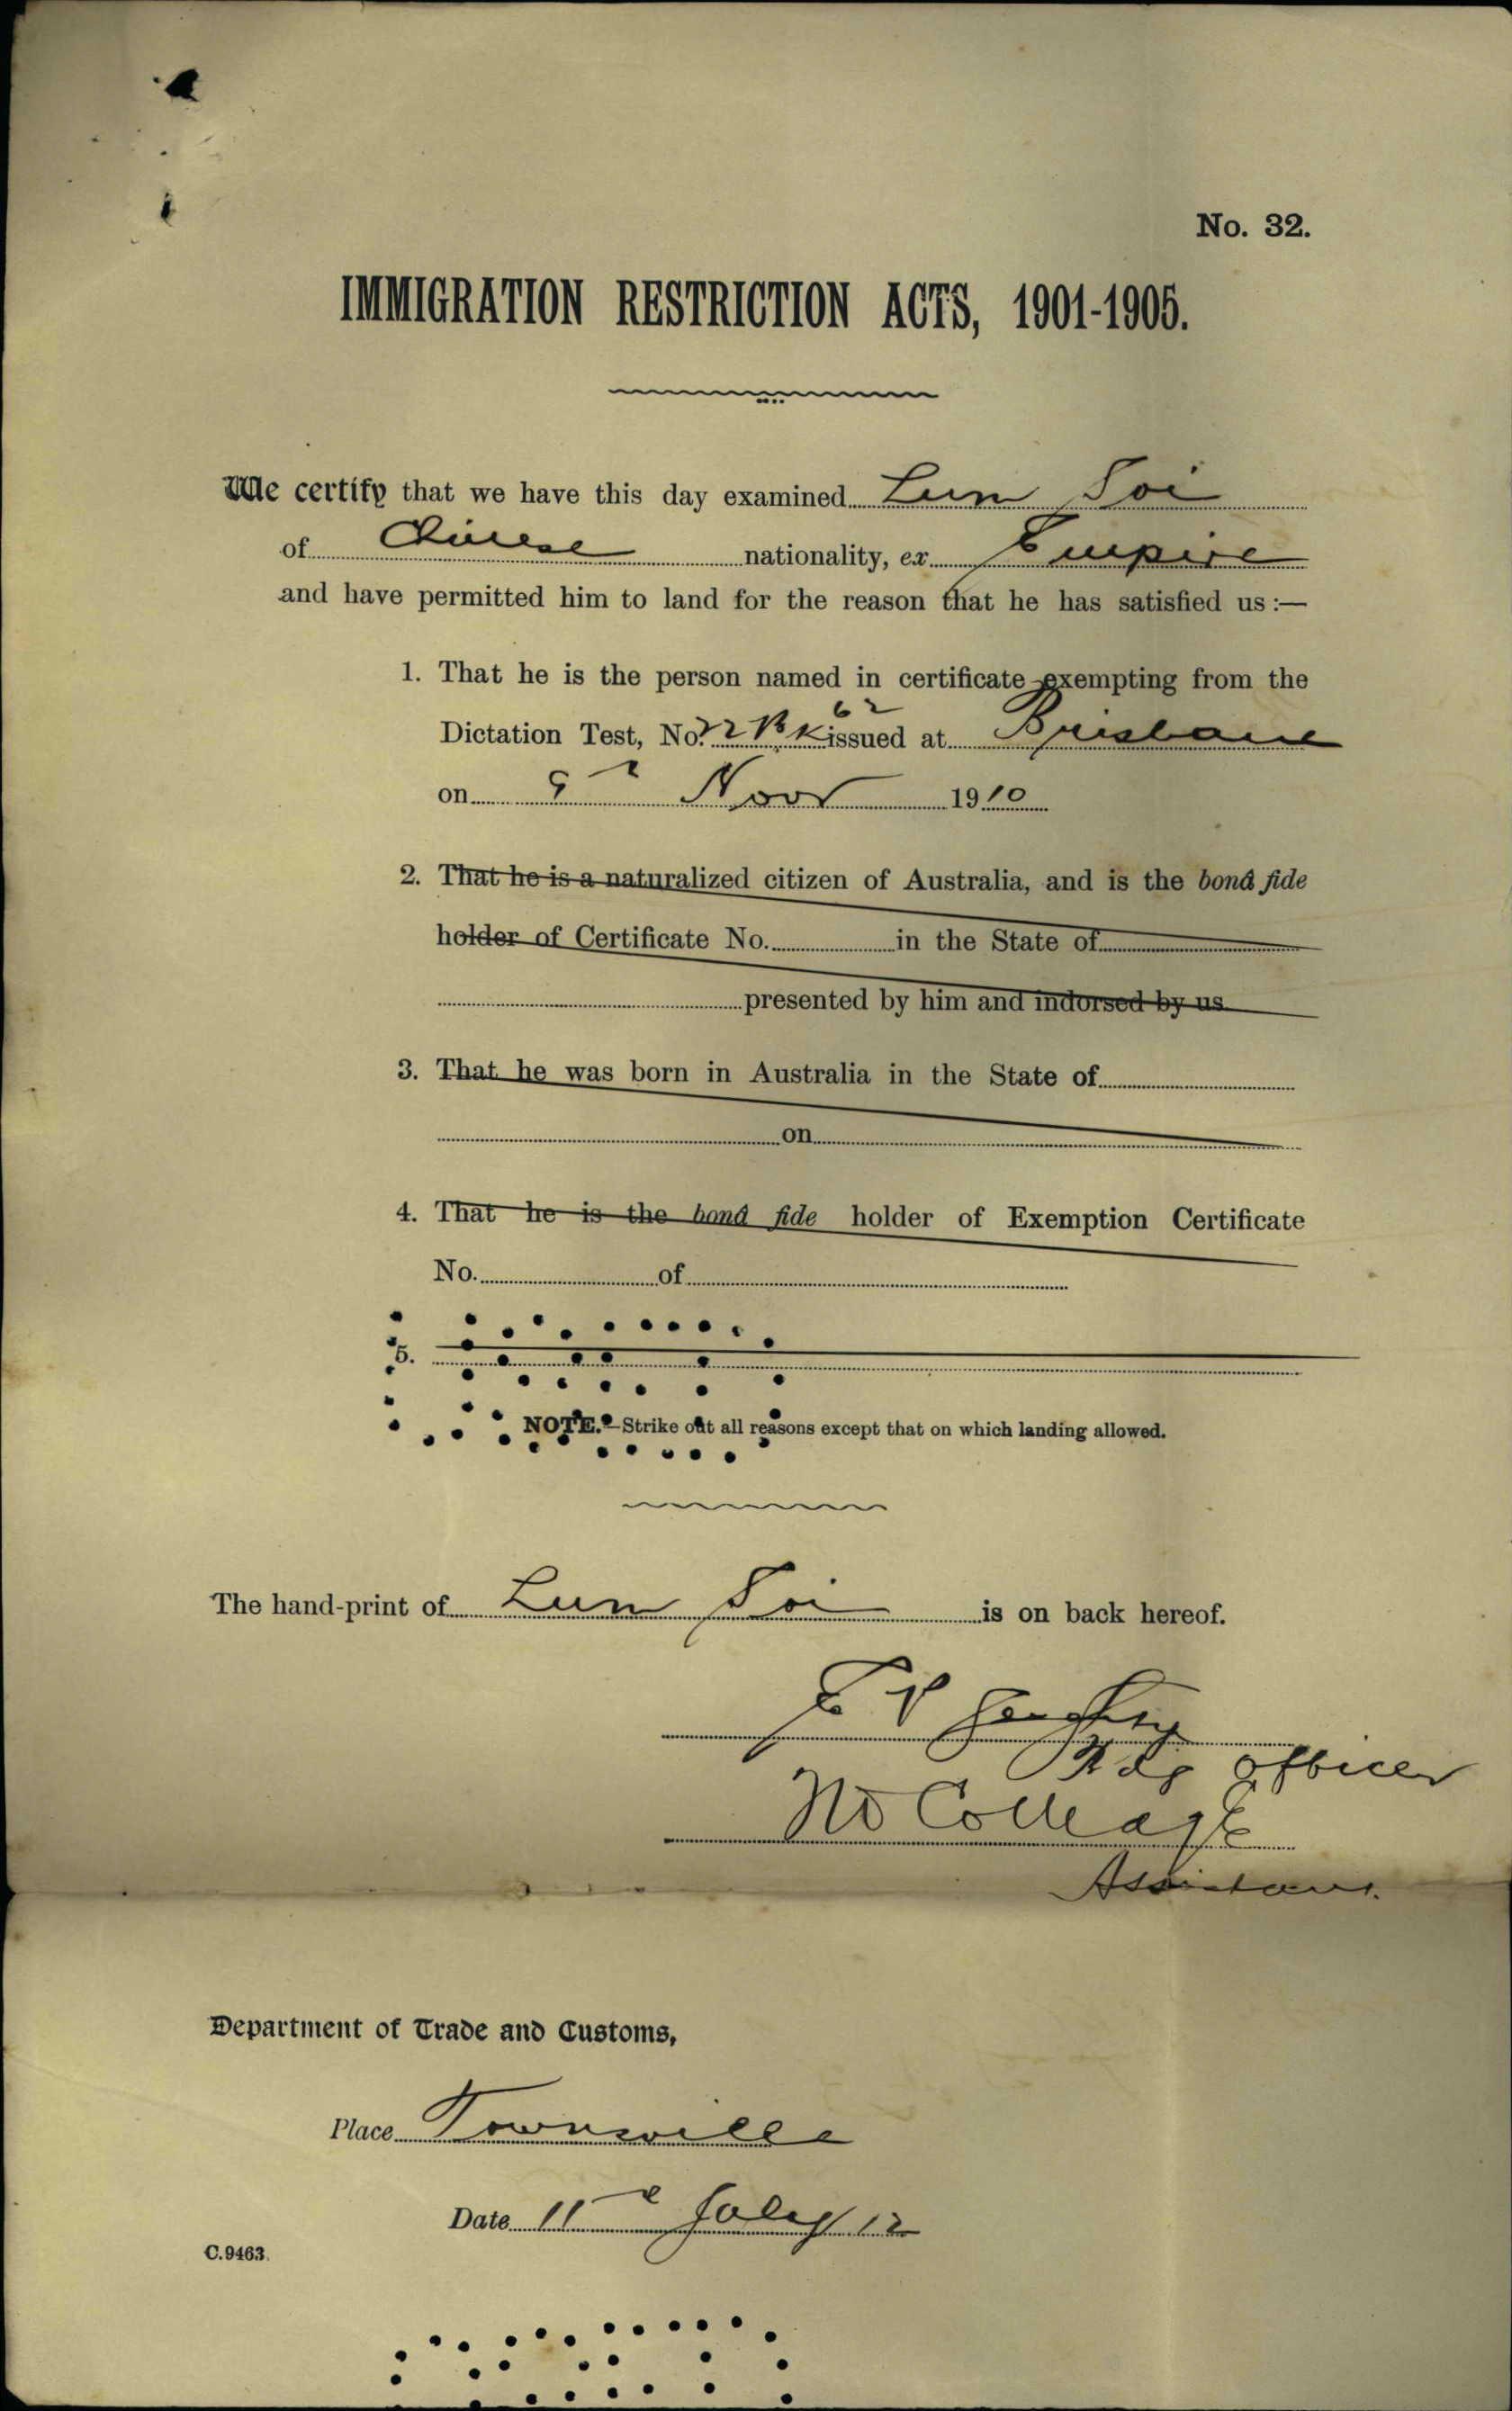 No. 32.
IMMIGRATION RESTRICTION ACTS, 1901-1905.
We certify that we have this day examined Lum Soi
of Chinese nationality, ex Empire
and have permitted him to land for the reason that he has satisfied us:—
1. That he is the person named in certificate exempting from the
62
Dictation Test, No. 22 Bk issued at Brisbane
on 9th Novr 1910
2. That he is a naturalized citizen of Australia, and is the bonâ fide
holder of Certificate No. in the State of
presented by him and indorsed by us
3. That he was born in Australia in the State of
on
4. That he is the bonâ fide holder of Exemption Certificate
No. of
5.
NOTE.—Strike out all reasons except that on which landing allowed.
The hand-print of Lum Soi is on back hereof.
Officer
Assistant.
Department of Trade and Customs,
Place Townsville
Date 11th July 12
C.9463.